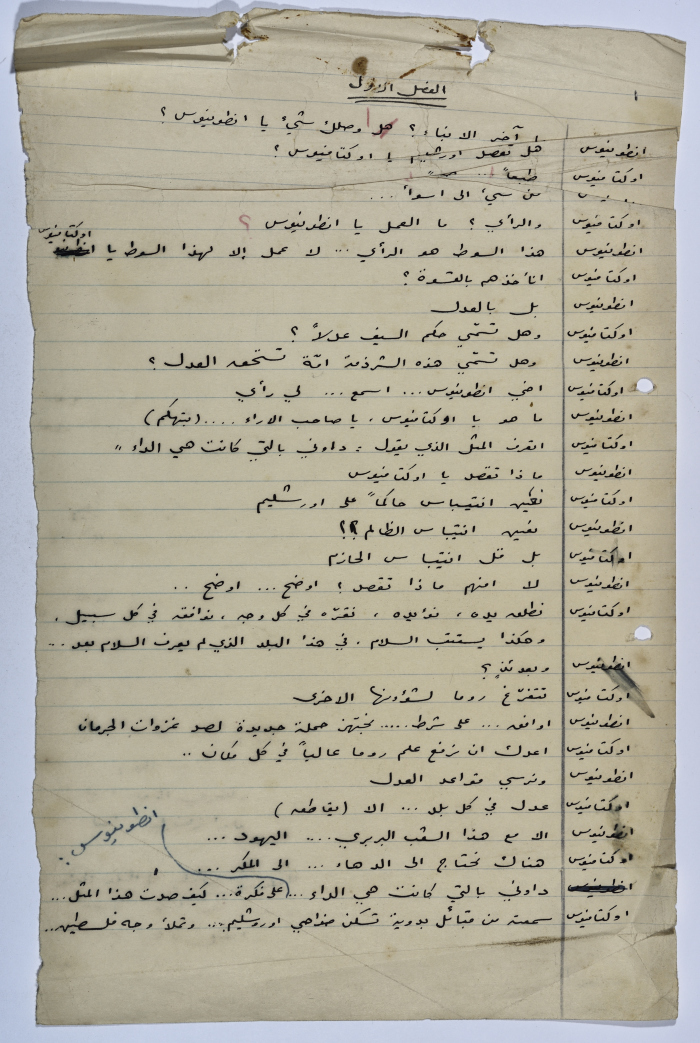 ١
الفصل الاول
انطونيوس ما آخر الانباء؟ هل وصلك شيءٌ يا انطونيوس؟
هل تقصد اورشليم يا اوكتافيوس؟
اوكتافيوس طبعاً ...
من سيءٍ الى اسوأ ....
اوكتافيوس والرأي؟ ما العمل يا انطونيوس؟
انطونيوس هذا السوط هو الرأي ... لا عمل إلا لهذا السوط يا اوكتافيوس
اوكتافيوس انأخذهم بالقسوة؟
انطونيوس بل بالعدل
اوكتافيوس وهل تسمّي حكم السيف عدلاً؟
انطونيوس وهل تسمّي هذه الشرذمة امّة تستحق العدل؟
اوكتافيوس اخي انطونيوس ... اسمع ... لي رأي
انطونيوس ما هو يا اوكتافيوس، يا صاحب الاراء .... (بتهكم)
اوكتافيوس اتعرف المثل الذي يقول: داوني بالتي كانت هي الداء"
انطونيوس ماذا تقصد يا اوكتافيوس
اوكتافيوس نعيّن انتيباس حاكماً على اورشليم
انطونيوس نعين انتيباس الظالم؟؟
اوكتافيوس بل قل انتيباس الحازم
انطونيوس لا افهم ماذا تقصد؟ اوضح ... اوضح ..
اوكتافيوس نطلق يده، نؤيده، نقرّه في كل وجه، نوافقه في كل سبيل،
وهكذا يستتب السلام، في هذا البلد الذي لم يعرف السلام بعد ...
انطونيوس وبعدئذٍ؟
اوكتافيوس تتفرّغ روما لشؤونها الاخرى
انطونيوس اوافق ... على شرط ..... نجهز حملة جديدة لصد غزوات الجرمان
اوكتافيوس اعدك ان نرفع علم روما عالياً في كل مكان ..
انطونيوس ونرسي قواعد العدل
اوكتافيوس عدل في كل بلد ... الا (يقاطعه)
انطونيوس الا مع هذا الشعب البربري .... اليهود ...
اوكتافيوس هناك نحتاج الى الدهاء ... الى المكر ...
انطونيوس:
داوني بالتي كانت هي الداء ... على فكرة ... كيف صدت هذا المثل ...
اوكتافيوس سمعته من قبائل بدوية تسكن ضواحي اورشليم ... وتملأ وجه فلسطين ..